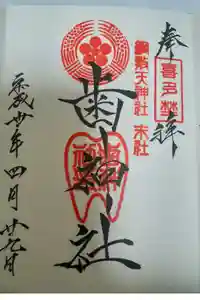 奉拝
喜多埜
綱敷天神社 末社
歯神社
平成廿年四月廿九日